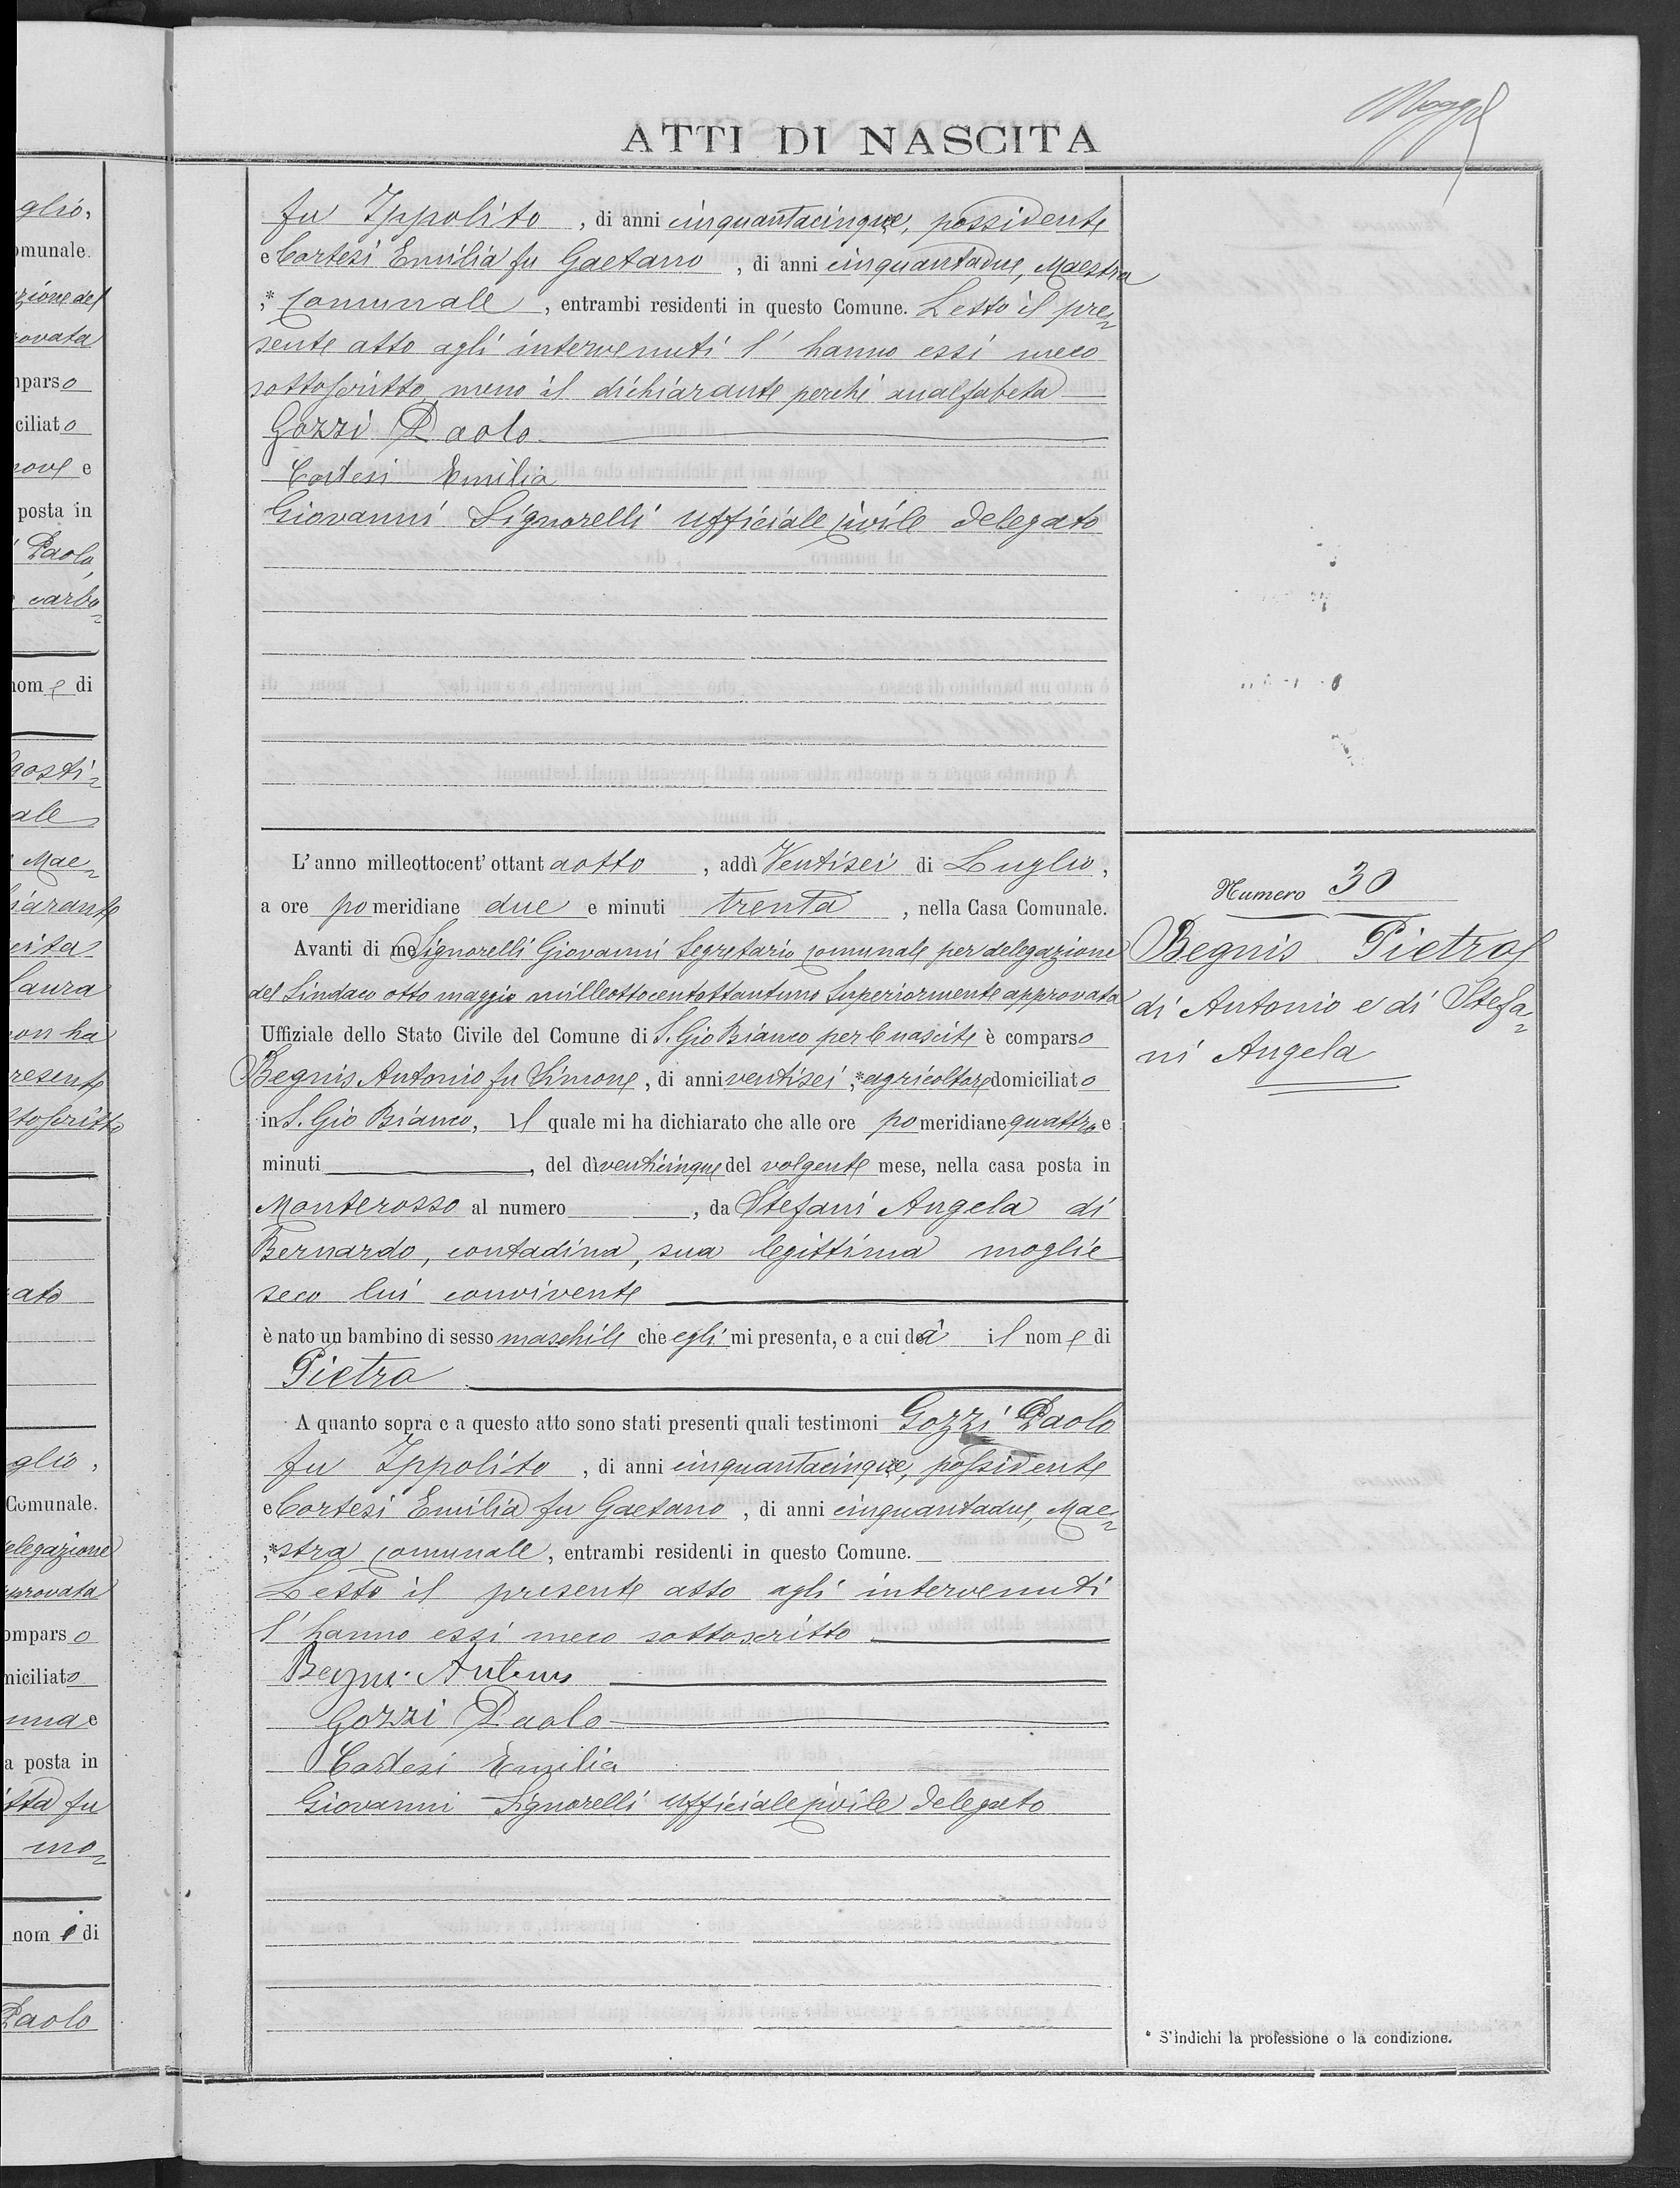 ATTI DI NASCITA
fu Ippolito, di anni cinquantacinque, possidente
e Cortesi Emilia fu Gaetano, di anni cinquantadue, Maestra
,* comunale, entrambi residenti in questo Comune. Letto il pre=
sente atto agli intervenuti l'hanno essi meco
sottoscritto meno il dichiarante perchè analfabeta
Gozzi Paolo
Cortesi Emilia
Giovanni Signorelli Ufficiale civile delegato
L'anno milleottocent'ottantaotto, addì Ventisei di Luglio,
a ore pomeridiane due e minuti trenta, nella Casa Comunale.
Avanti di me Signorelli Giovanni Segretario comunale per delegazione
del Sindaco otto maggio milleottocentottantuno Superiormente approvata
Uffiziale dello Stato Civile del Comune di S. Gio Bianco per le nascite è comparso
Begnis Antonio fu Simone, di anni ventisei,* agricoltore domiciliato
in S. Gio Bianco, il quale mi ha dichiarato che alle ore pomeridiane quattro e
minuti, del dì venticinque del volgente mese, nella casa posta in
Monterosso al numero, da Stefani Angela di
Bernardo, contadina, sua legittima moglie
seco lui convivente
è nato un bambino di sesso maschile che egli mi presenta, e a cui dà il nome di
Pietro
A quanto sopra e a questo atto sono stati presenti quali testimoni Gozzi Paolo
fu Ippolito, di anni cinquantacinque, possidente
e Cortesi Emilia fu Gaetano, di anni cinquantadue, Mae=
,*stra comunale, entrambi residenti in questo Comune.
Letto il presente atto agli intervenuti
l'hanno essi meco sottoscritto
Begni Antonio
Gozzi Paolo
Cortesi Emilia
Giovanni Signorelli Ufficiale civile delegato
Numero 30
Begnis Pietro
di Antonio e di Stefa=
ni Angela
* S'indichi la professione o la condizione.
glio,
omunale.
zione del
rovata
mparso
ciliato
nove e
posta in
Paolo,
carbo=
nome di
gosti=
ale
Mae=
hiarante
Laura
non ha
resente
ttoscritto
ato
glio,
Comunale.
elegazione
provata
omparso
miciliato
una e
a posta in
fu
mo=
nome di
Paolo